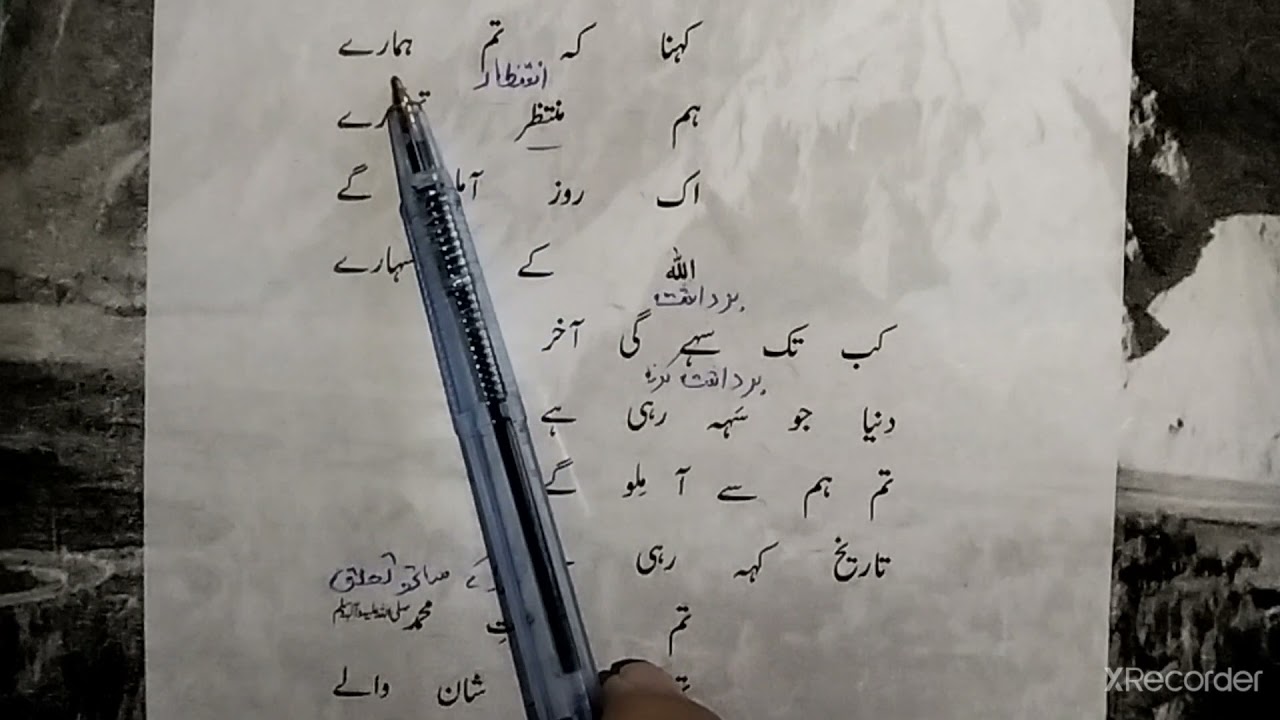 کہنا کہ تم ہمارے
انتظار
ہم منتظر
اک روز آ گے
اللہ کے سہارے
برداشت
کب تک سہے گی آخر
برداشت کرنا
دنیا جو سَہہ رہی ہے
تم ہم سے آ مِلو گے
تاریخ کہہ رہی
کے ساتھ تعلق
تم محمد صلی اللہ علیہ وآلہ وسلم
شان والے
XRecorder